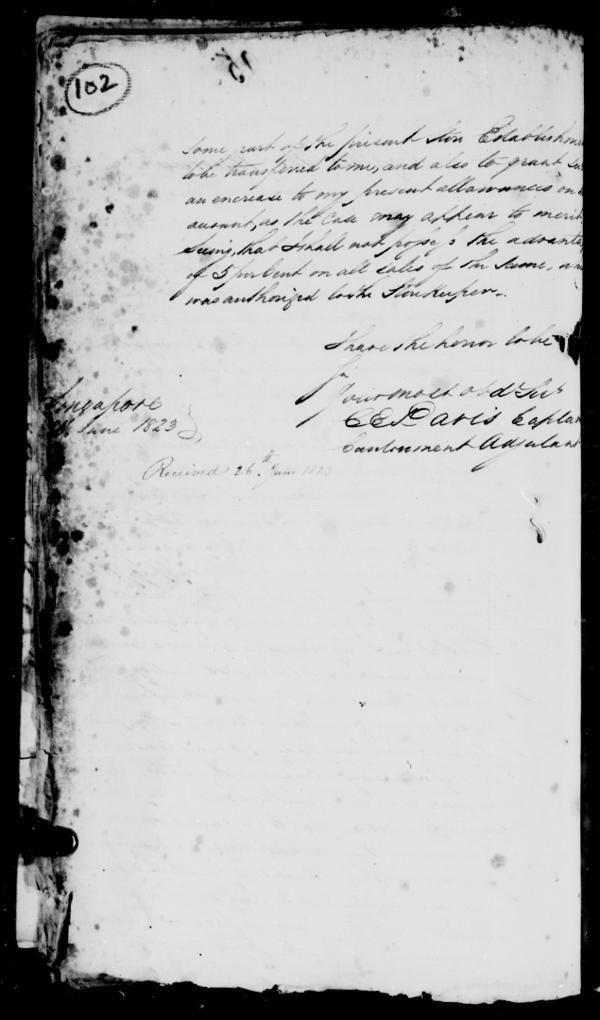 102
some part of the present Store Establishme
to be transferred to me, and also to grant
an encrease to my present allowances on
account, as the Case may appear to merit
seeing, that I shall not possess the advanta
of 5 per Cent on all sales of the same,
was authorized to the Storekeeper.
I have the honor to be
Sir
Your most obdt. Servt
C E Davis Captai
Cantonment Adjutant
Singapore
June 1823
Received 26th. June 1823